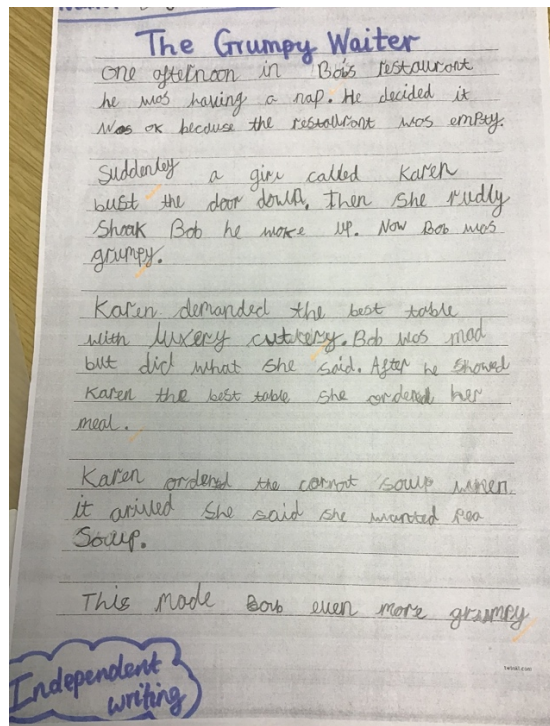 The Grumpy Waiter
One afternoon in Bob's restaurant
he was having a nap. He decided it
was ok because the restaurant was empty.
Suddenley a girl called Karen
bust the door down. Then she rudly
shoak Bob he woke up. Now Bob was
grumpy.
Karen demanded the best table
with luxery cutlery. Bob was mad
but did what she said. After he showed
Karen the best table she ordered her
meal.
Karen orderd the carrot soup when
it arived she said she wanted pea
soup.
This made Bob even more grumpy
Independent
writing